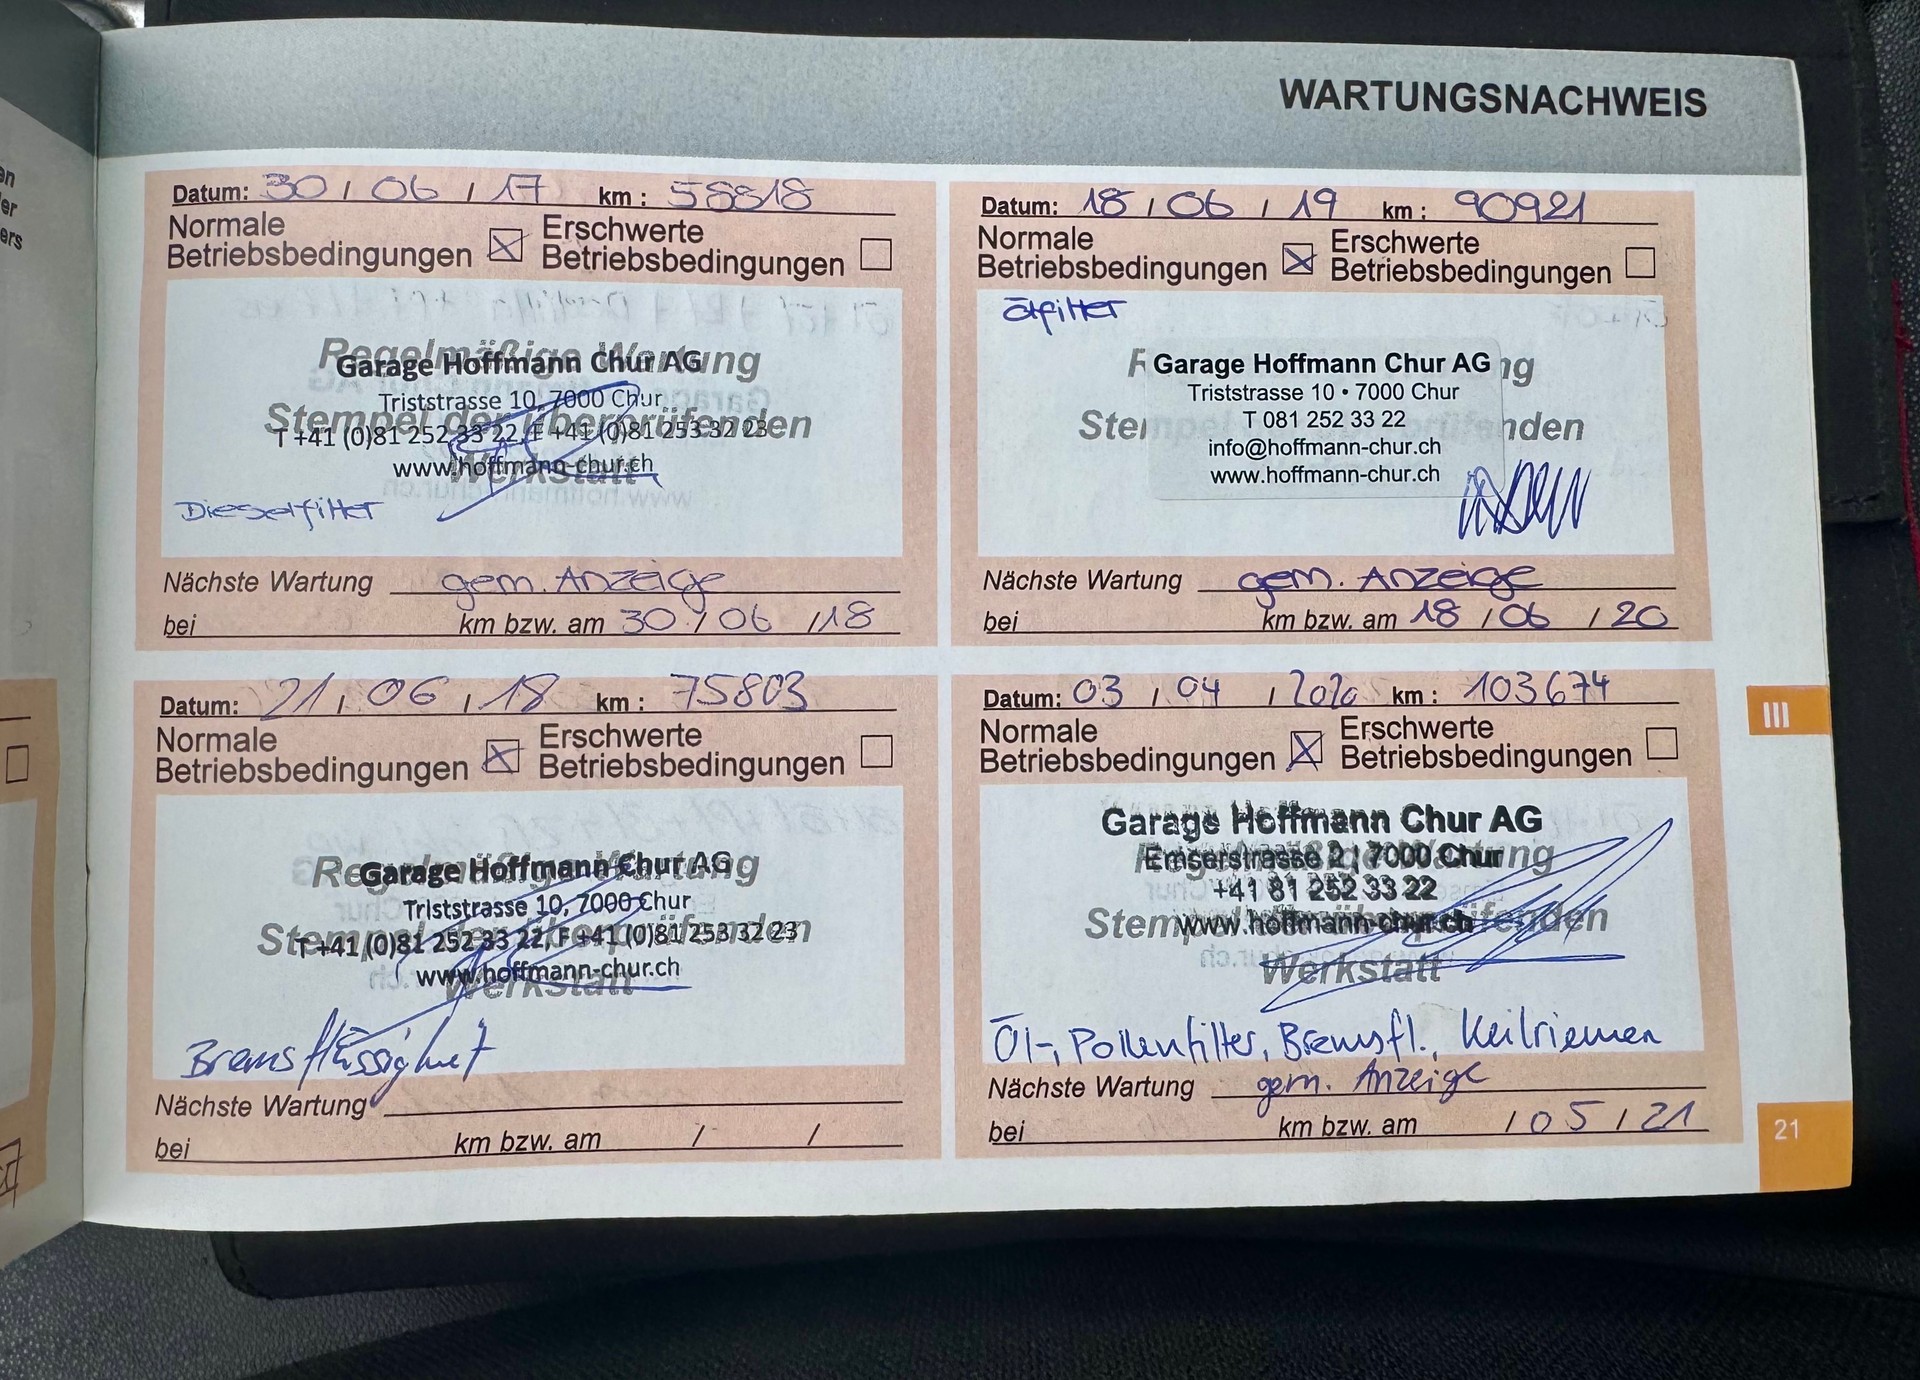 en
er
ers
WARTUNGSNACHWEIS
Datum: 30 / 06 / 17 km : 58818
Normale Betriebsbedingungen
Erschwerte Betriebsbedingungen
Regelmäßige Wartung
Stempel der überprüfenden
Werkstatt
Garage Hoffmann Chur AG
Triststrasse 10, 7000 Chur
T +41 (0)81 252 33 22, F +41 (0)81 253 32 23
www.hoffmann-chur.ch
Dieselfilter
Nächste Wartung gem. Anzeige
bei km bzw. am 30 / 06 / 18
Datum: 18 / 06 / 19 km : 90921
Normale Betriebsbedingungen
Erschwerte Betriebsbedingungen
Ölfilter
Garage Hoffmann Chur AG
Triststrasse 10 • 7000 Chur
T 081 252 33 22
info@hoffmann-chur.ch
www.hoffmann-chur.ch
Nächste Wartung gem. Anzeige
bei km bzw. am 18 / 06 / 20
Datum: 21 / 06 / 18 km : 75803
Normale Betriebsbedingungen
Erschwerte Betriebsbedingungen
Regelmäßige Wartung
Stempel der überprüfenden
Werkstatt
Garage Hoffmann Chur AG
Triststrasse 10, 7000 Chur
T +41 (0)81 252 33 22, F +41 (0)81 253 32 23
www.hoffmann-chur.ch
Bremsflüssigkeit
Nächste Wartung
bei km bzw. am / /
Datum: 03 / 04 / 2020 km : 103674
Normale Betriebsbedingungen
Erschwerte Betriebsbedingungen
Regelmäßige Wartung
Stempel der überprüfenden
Werkstatt
Garage Hoffmann Chur AG
Emserstrasse 2 | 7000 Chur
+41 81 252 33 22
www.hoffmann-chur.ch
Öl-, Pollenfilter, Bremsfl., Keilriemen
Nächste Wartung gem. Anzeige
bei km bzw. am / 05 / 21
III
21